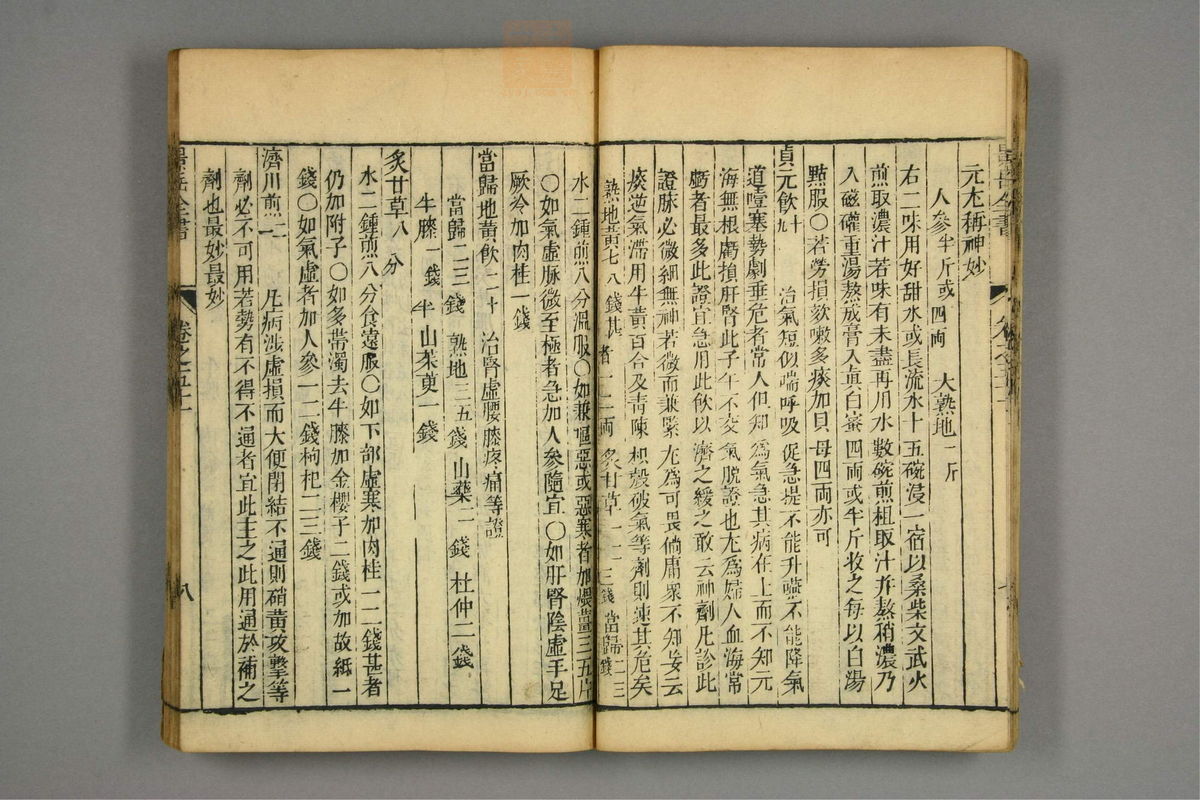 元尤稱神妙
人參半斤或四兩 大熟地一斤
右二味用好甜水或長流水十五碗浸一宿以桑柴文武火
煎取濃汁若味有未盡再用水數碗煎柤取汁并熬稍濃乃
入磁礶重湯熬成膏入眞白蜜四兩或半斤收之每以白湯
點服○若勞損欬嗽多痰加貝母四兩亦可
貞元飲十九 治氣短似喘呼吸促急提不能升嚥不能降氣
道噎塞勢劇垂危者常人但知為氣急其病在上而不知元
海無根虧損肝腎此子午不交氣脫證也尤為婦人血海常
虧者最多此證宜急用此飲以濟之緩之敢云神劑凡診此
證脉必微細無神若微而兼緊尤為可畏倘庸衆不知妄云
痰逆氣滯用牛黃百合及青陳枳殼破氣等劑則速其危矣
熟地黃七八錢甚者一二兩 炙甘草一二三錢 當歸二三錢
水二鍾煎八分溫服○如兼嘔惡或惡寒者加煨薑三五片
○如氣虛脉微至極者急加人參隨宜○如肝腎陰虛手足
厥冷加肉桂一錢
當歸地黃飲二十 治腎虛腰膝疼痛等證
當歸二三錢 熟地三五錢 山藥二錢 杜仲二錢
牛膝一錢半 山茱萸一錢
炙甘草八分
水二鍾煎八分食遠服○如下部虛寒加肉桂一二錢甚者
仍加附子○如多帶濁去牛膝加金櫻子二錢或加故紙一
錢○如氣虛者加人參一二錢枸杞二三錢
濟川煎二一 凡病涉虛損而大便閉結不通則硝黃攻擊等
劑必不可用若勢有不得不通者宜此主之此用通於補之
劑也最妙最妙
景岳全書 卷之五十一 八